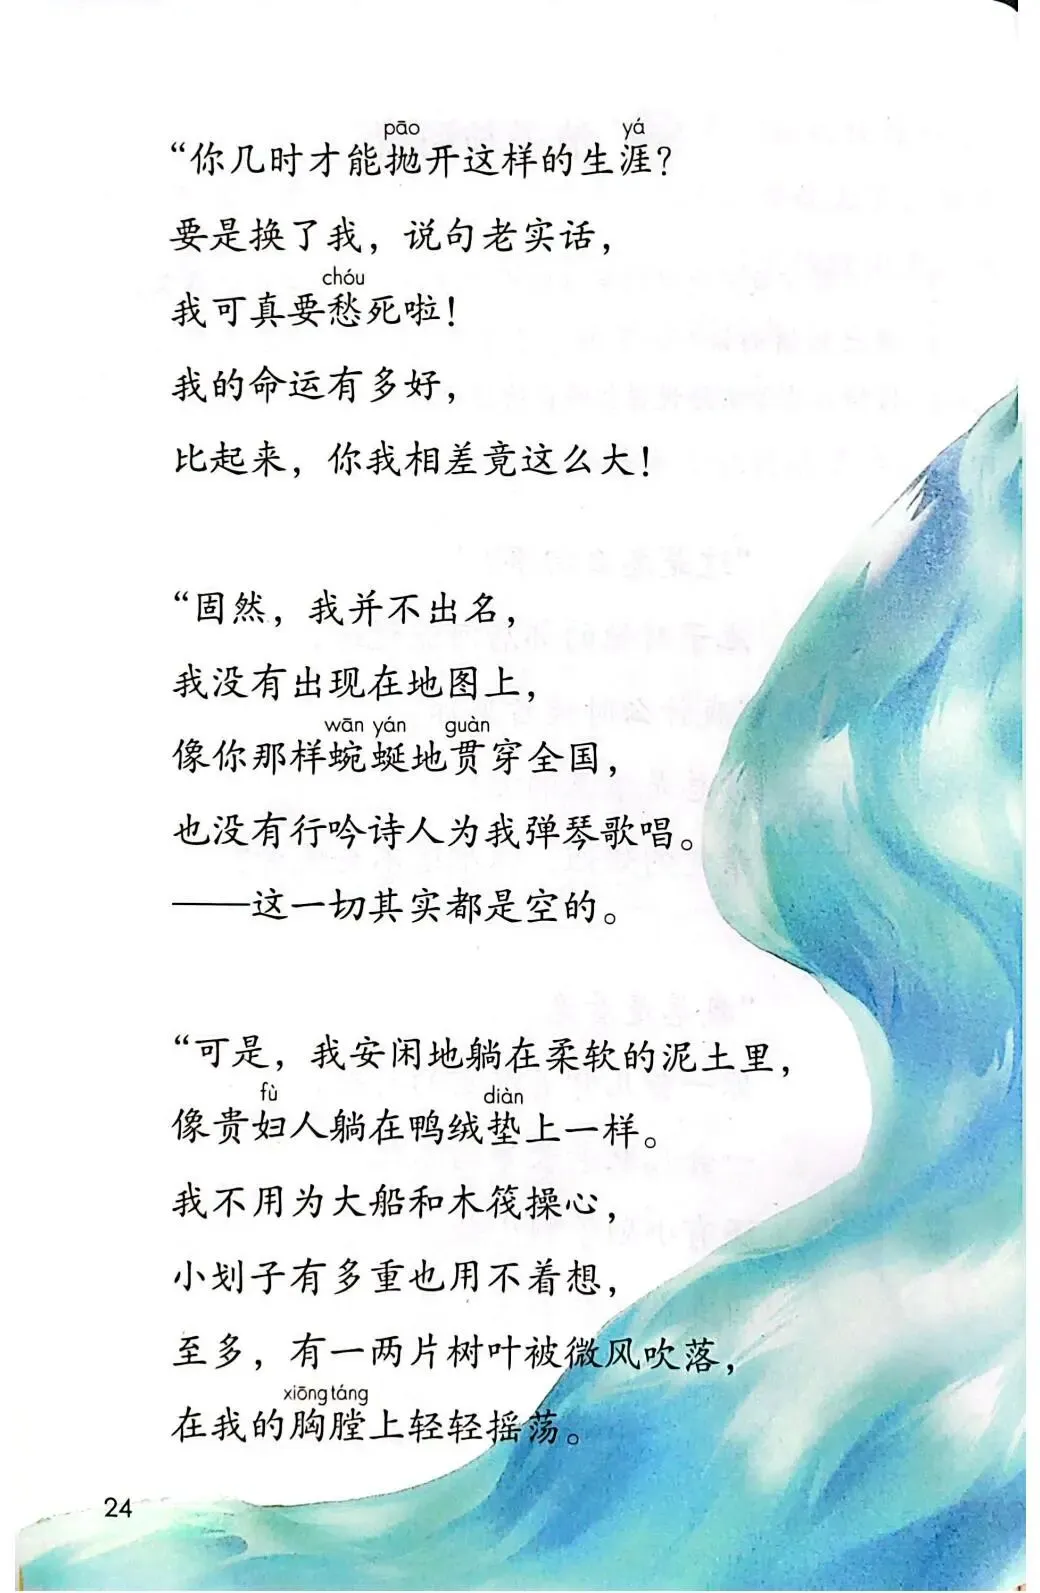 pāo yá
“你几时才能抛开这样的生涯？
要是换了我，说句老实话，
chóu
我可真要愁死啦！
我的命运有多好，
比起来，你我相差竟这么大！
“固然，我并不出名，
我没有出现在地图上，
wān yán guàn
像你那样蜿蜒地贯穿全国，
也没有行吟诗人为我弹琴歌唱。
——这一切其实都是空的。
“可是，我安闲地躺在柔软的泥土里，
fù diàn
像贵妇人躺在鸭绒垫上一样。
我不用为大船和木筏操心，
小划子有多重也用不着想，
至多，有一两片树叶被微风吹落，
xiōng táng
在我的胸膛上轻轻摇荡。
24